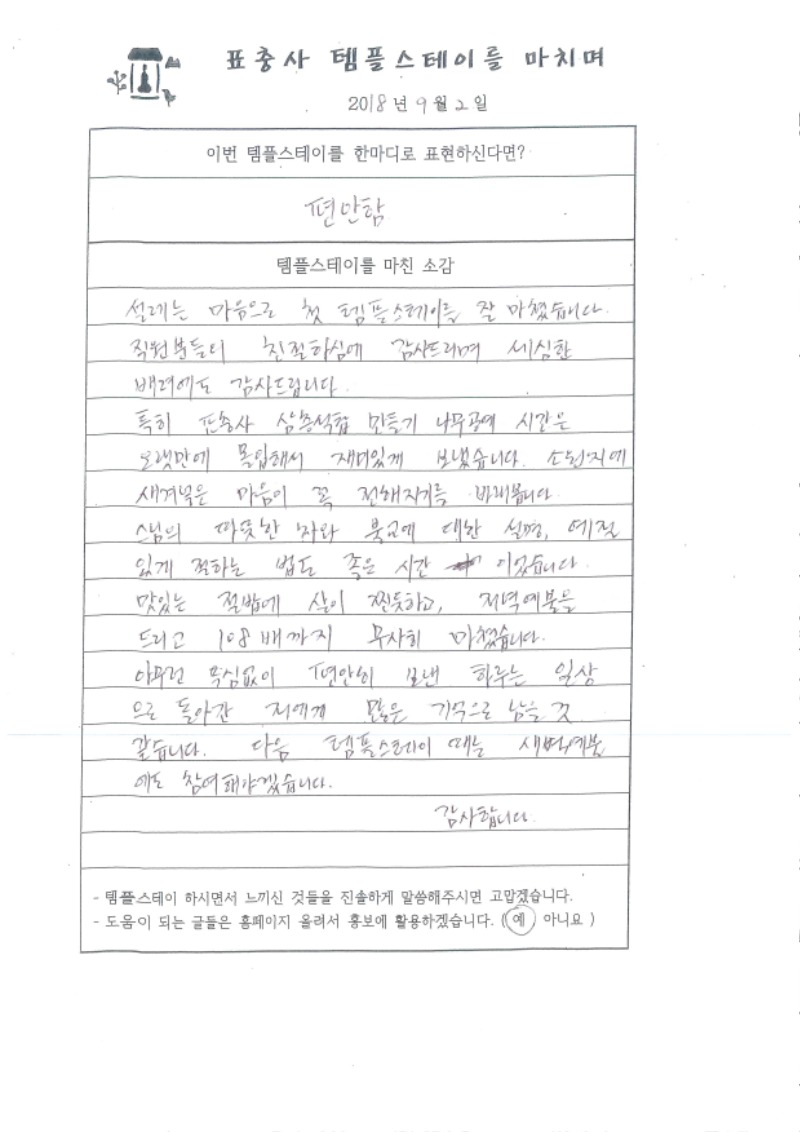 표충사 템플스테이를 마치며
2018년 9월 2일
이번 템플스테이를 한마디로 표현하신다면?
편안함
템플스테이를 마친 소감
설레는 마음으로 첫 템플스테이를 잘 마쳤습니다.
직원분들의 친절하심에 감사드리며 세심한
배려에도 감사드립니다.
특히 표충사 삼층석탑 만들기 나무공예 시간은
오랫만에 몰입해서 재미있게 보냈습니다. 소원지에
새겨넣은 마음이 꼭 전해지기를 바래봅니다.
스님의 따뜻한 차와 불교에 대한 설명, 예절
있게 절하는 법도 좋은 시간 이었습니다.
맛있는 절밥에 살이 찐듯하고, 저녁예불을
드리고 108배까지 무사히 마쳤습니다.
아무런 욕심없이 편안히 보낸 하루는 일상
으로 돌아간 저에게 많은 기억으로 남을 것
같습니다. 다음 템플스테이 때는 새벽예불
에도 참여해야겠습니다.
감사합니다.
- 템플스테이 하시면서 느끼신 것들을 진솔하게 말씀해주시면 고맙겠습니다.
- 도움이 되는 글들은 홈페이지 올려서 홍보에 활용하겠습니다. ( 예 아니요 )